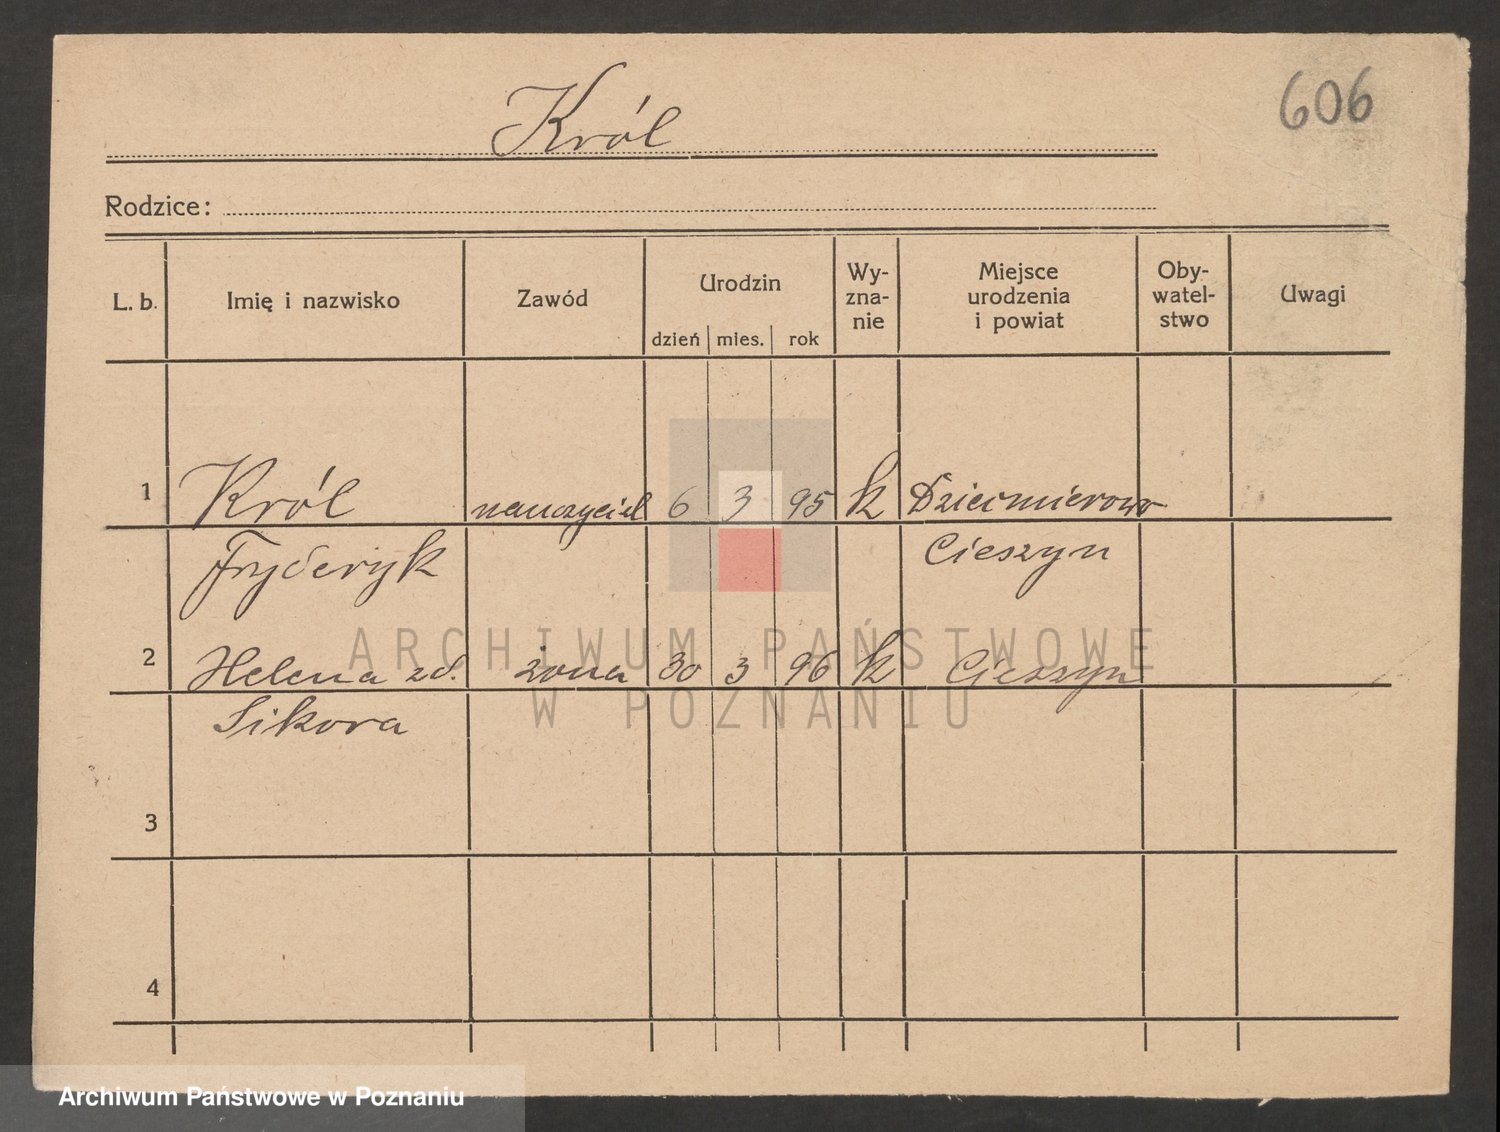 606
Król
Rodzice:
L. b. Imię i nazwisko Zawód Urodzin dzień mies. rok Wy-zna-nie Miejsce urodzenia i powiat Oby-watel-stwo Uwagi
1 Król nauczyciel 6 3 95 k Dziećmierowo
Fryderyk Cieszyn
2 Helena zd. żona 30 3 96 k Cieszyn
Sikora
3
4
ARCHIWUM PAŃSTWOWE
W POZNANIU
Archiwum Państwowe w Poznaniu